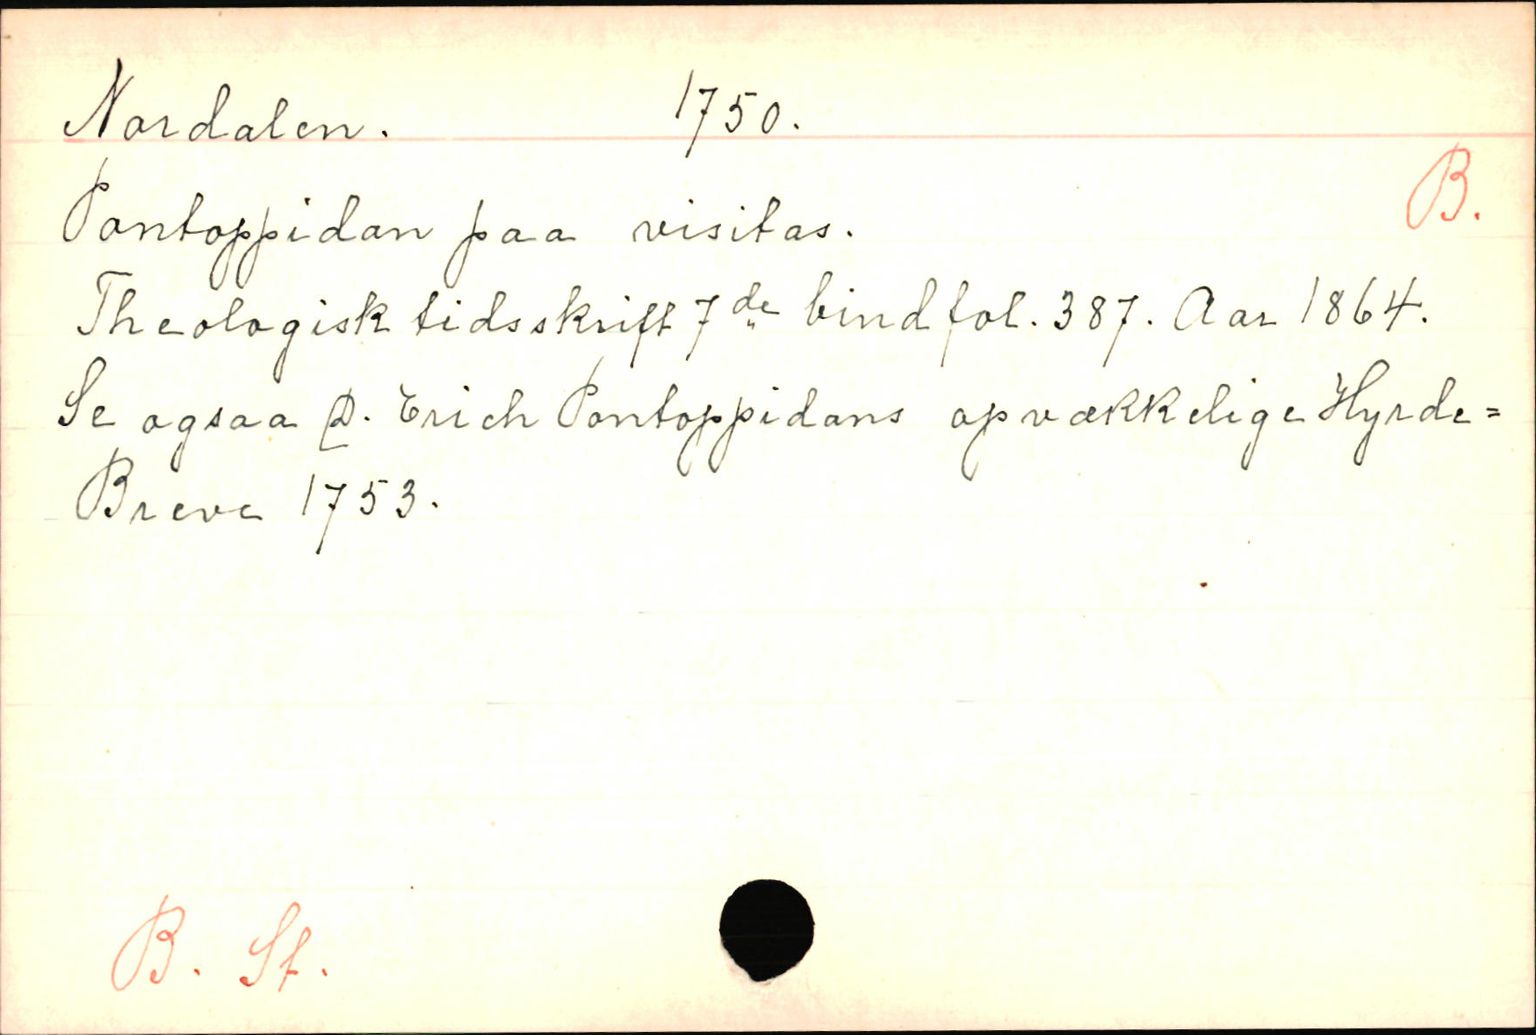 Nordalen. 1750.
B.
Pontoppidan paa visitas.
Theologisk tidsskrift 7de bind fol. 387. Aar 1864.
Se ogsaa D. Erich Pontoppidans opvækkelige Hyrde=
Breve 1753.
B. St.